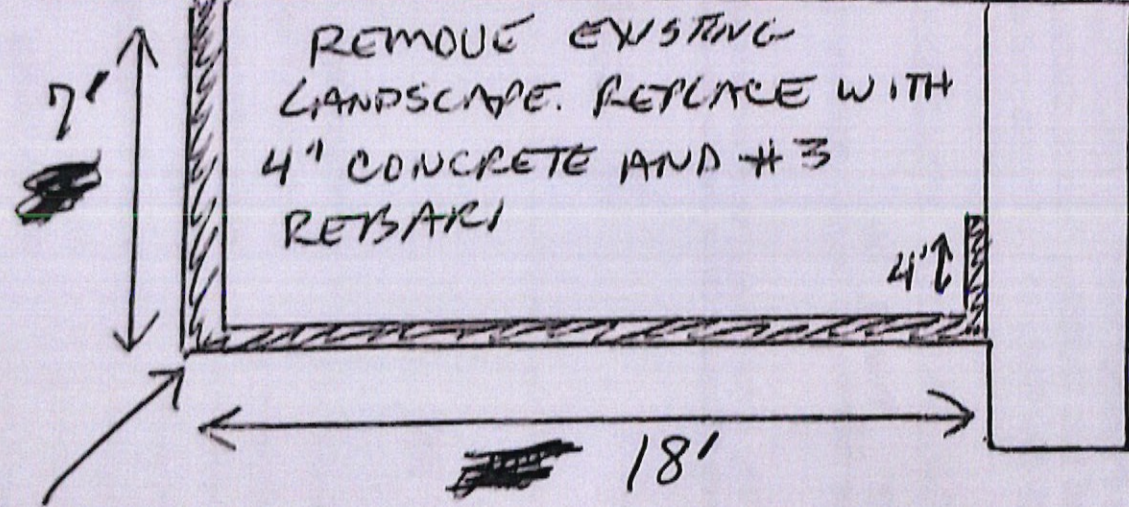 REMOVE EXISTING
LANDSCAPE. REPLACE WITH
7'
4" CONCRETE AND #3
REBAR
4'
18'